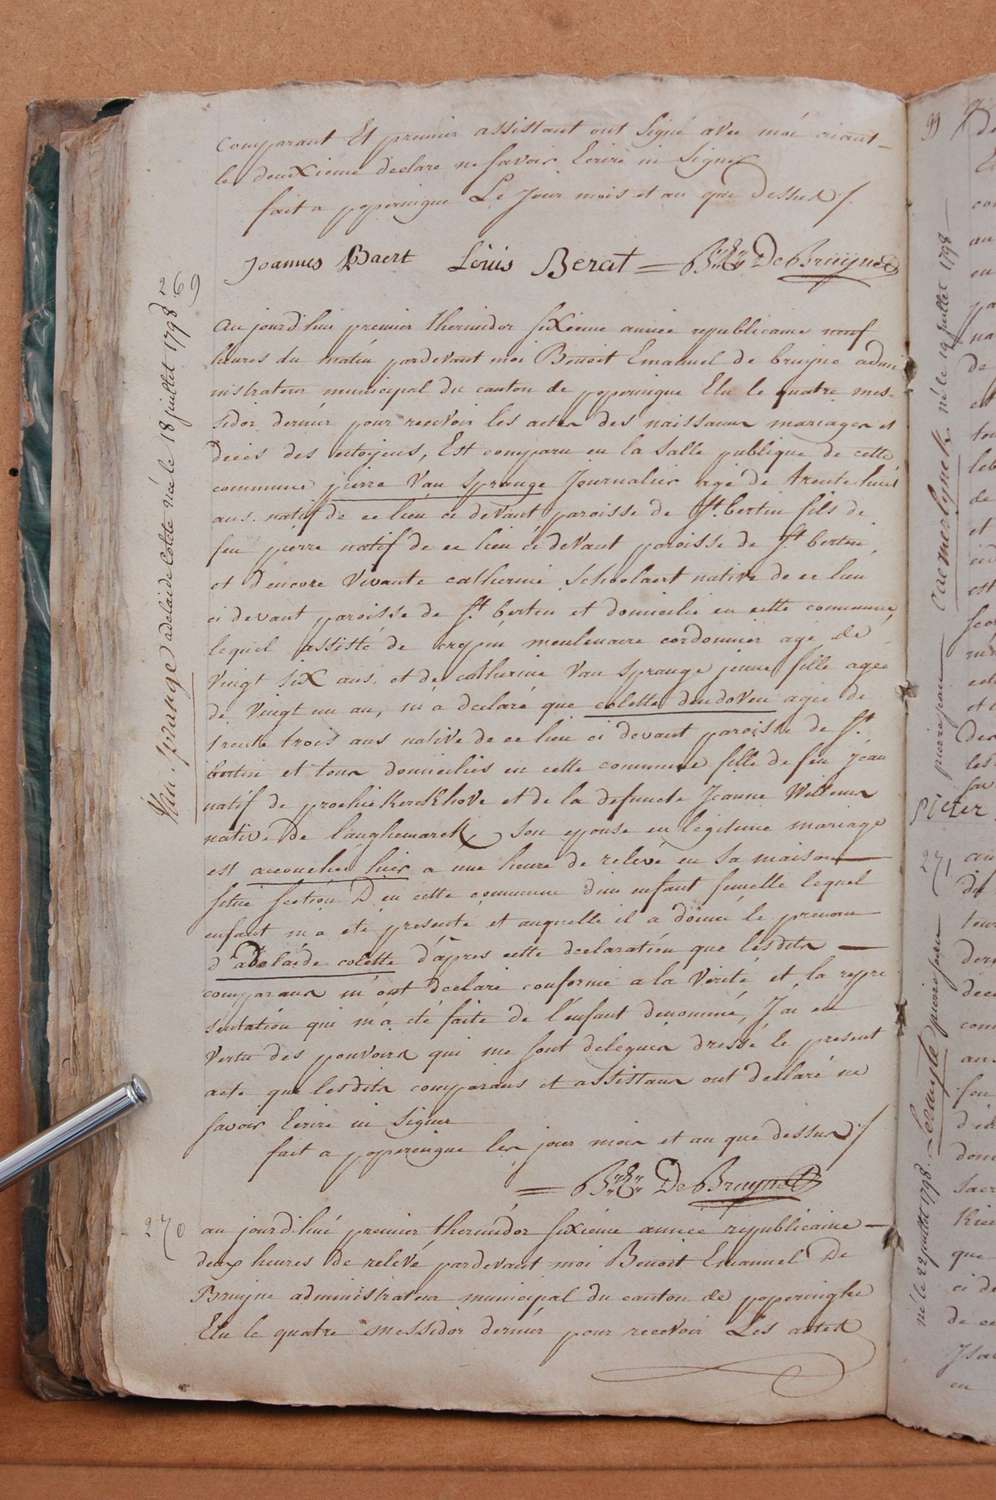 comparant Et premier assistant ont Signé avec moi aiant
le deuxieme declaré ne savoir Ecrire ni Signer
fait a poperingue Le Jour mois et an que dessus /
Joannes Baert Louis Berat = DeBruyne
269
Van Sprange adelaide Colete née le 18 juillet 1798
au jourd'hui premier thermidor sixieme année republicaine neuf
heures du matin pardevant moi Benoit Emanuel de bruyne admi
nistrateur municipal du canton de poperingue Elu le quatre mes-
sidor dernier pour recevoir les actes des naissances mariages et
décés des citoyens, Est comparu en la Salle publique de cette
commune pierre Van Sprange Journalier agé de trente huit
ans natif de ce lieu ci devant paroisse de St. bertin fils de
feu pierre natif de ce lieu ci deVant paroisse de St. bertin,
et d'encore Vivante catherine Schoolaert native de ce lieu
ci devant paroisse de St. bertin et domicilié en cette commune
lequel assisté de crepin meulenaere cordonnier agé de
Vingt Six ans, et de catherine Van Sprange jeune fille agée
de Vingt un an, m'a declaré que colette dendoven agée de
trente trois ans native de ce lieu ci devant paroisse de St.
bertin et tous domiciliés en cette commune fille de feu jean
natif de proehiekerckhove et de la defuncte Jeanne Willems
native De Langhemarck Son epouse en legitime mariage
est accouchée hier a une heure de relevé en Sa maison
Sitüé Section D en cette commune d'un enfant femelle lequel
enfant m'a eté presenté et auquelle il a donné le prenom
d'adelaide colette d'apres cette declaration que lesdits
comparans m'ont declaré conforme a la Verité et la repre
sentation qui m'a été faite de l'enfant denommé, J'ai en
Vertu des pouvoirs qui me sont delegués dressé le present
acte que lesdits comparans et assistans ont declaré ne
savoir Ecrire ni Signer
fait a poperingue les jour mois et an que dessus /
= DeBruyne
270
au jourd'hui premier thermidor sixième année republicaine
deux heures de relévé pardevant moi Benoit Emanuel De
Bruijne administrateur municipal du canton de poperinghe
Elu le quatre messidor dernier pour recevoir Les actes
99
Cacmerlynck né le 19 juillet 1798
pierre jean
Pieter
271
né le 22 juillet 1798.